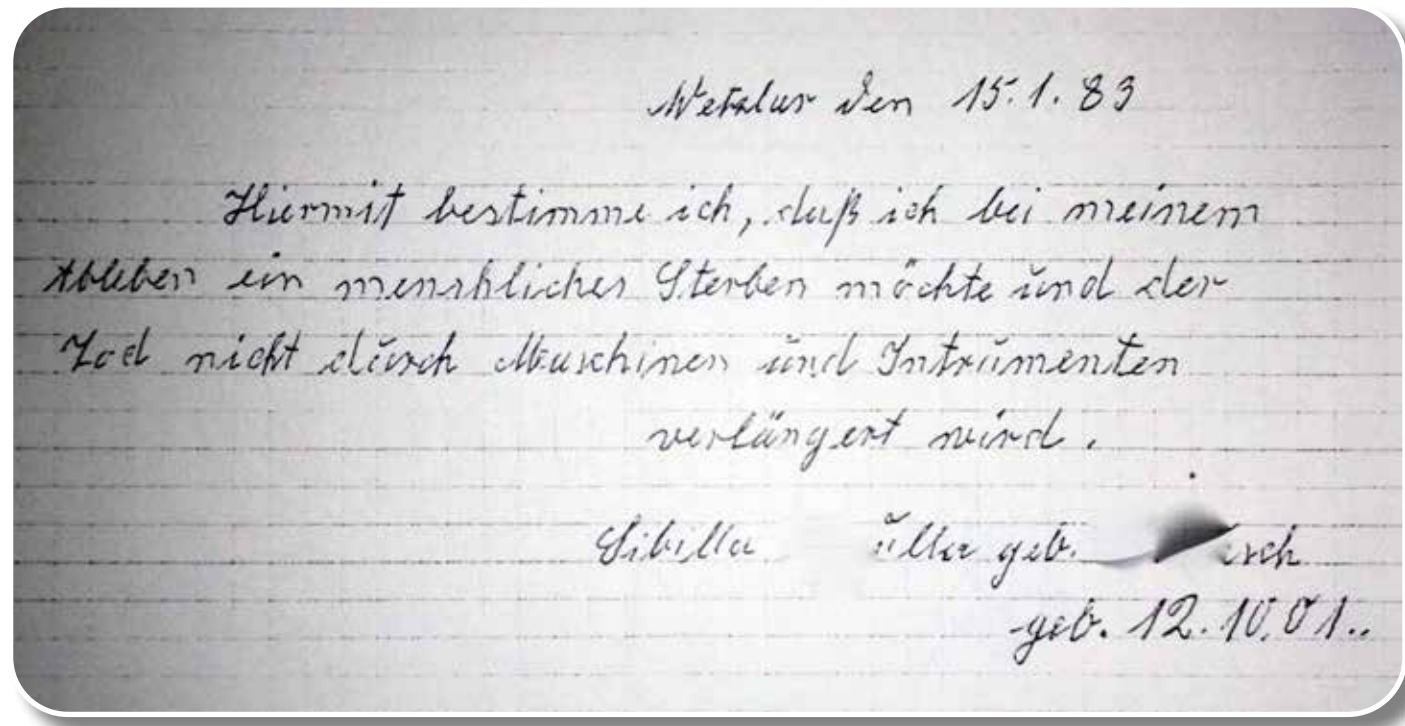 Wetzlar den 15.1.83
Hiermit bestimme ich, daß ich bei meinem
Ableben ein menshliches Sterben möchte und der
Tod nicht durch Maschinen und Intrumenten
verlängert wird.
Sibilla geb.
geb. 12.10.01..